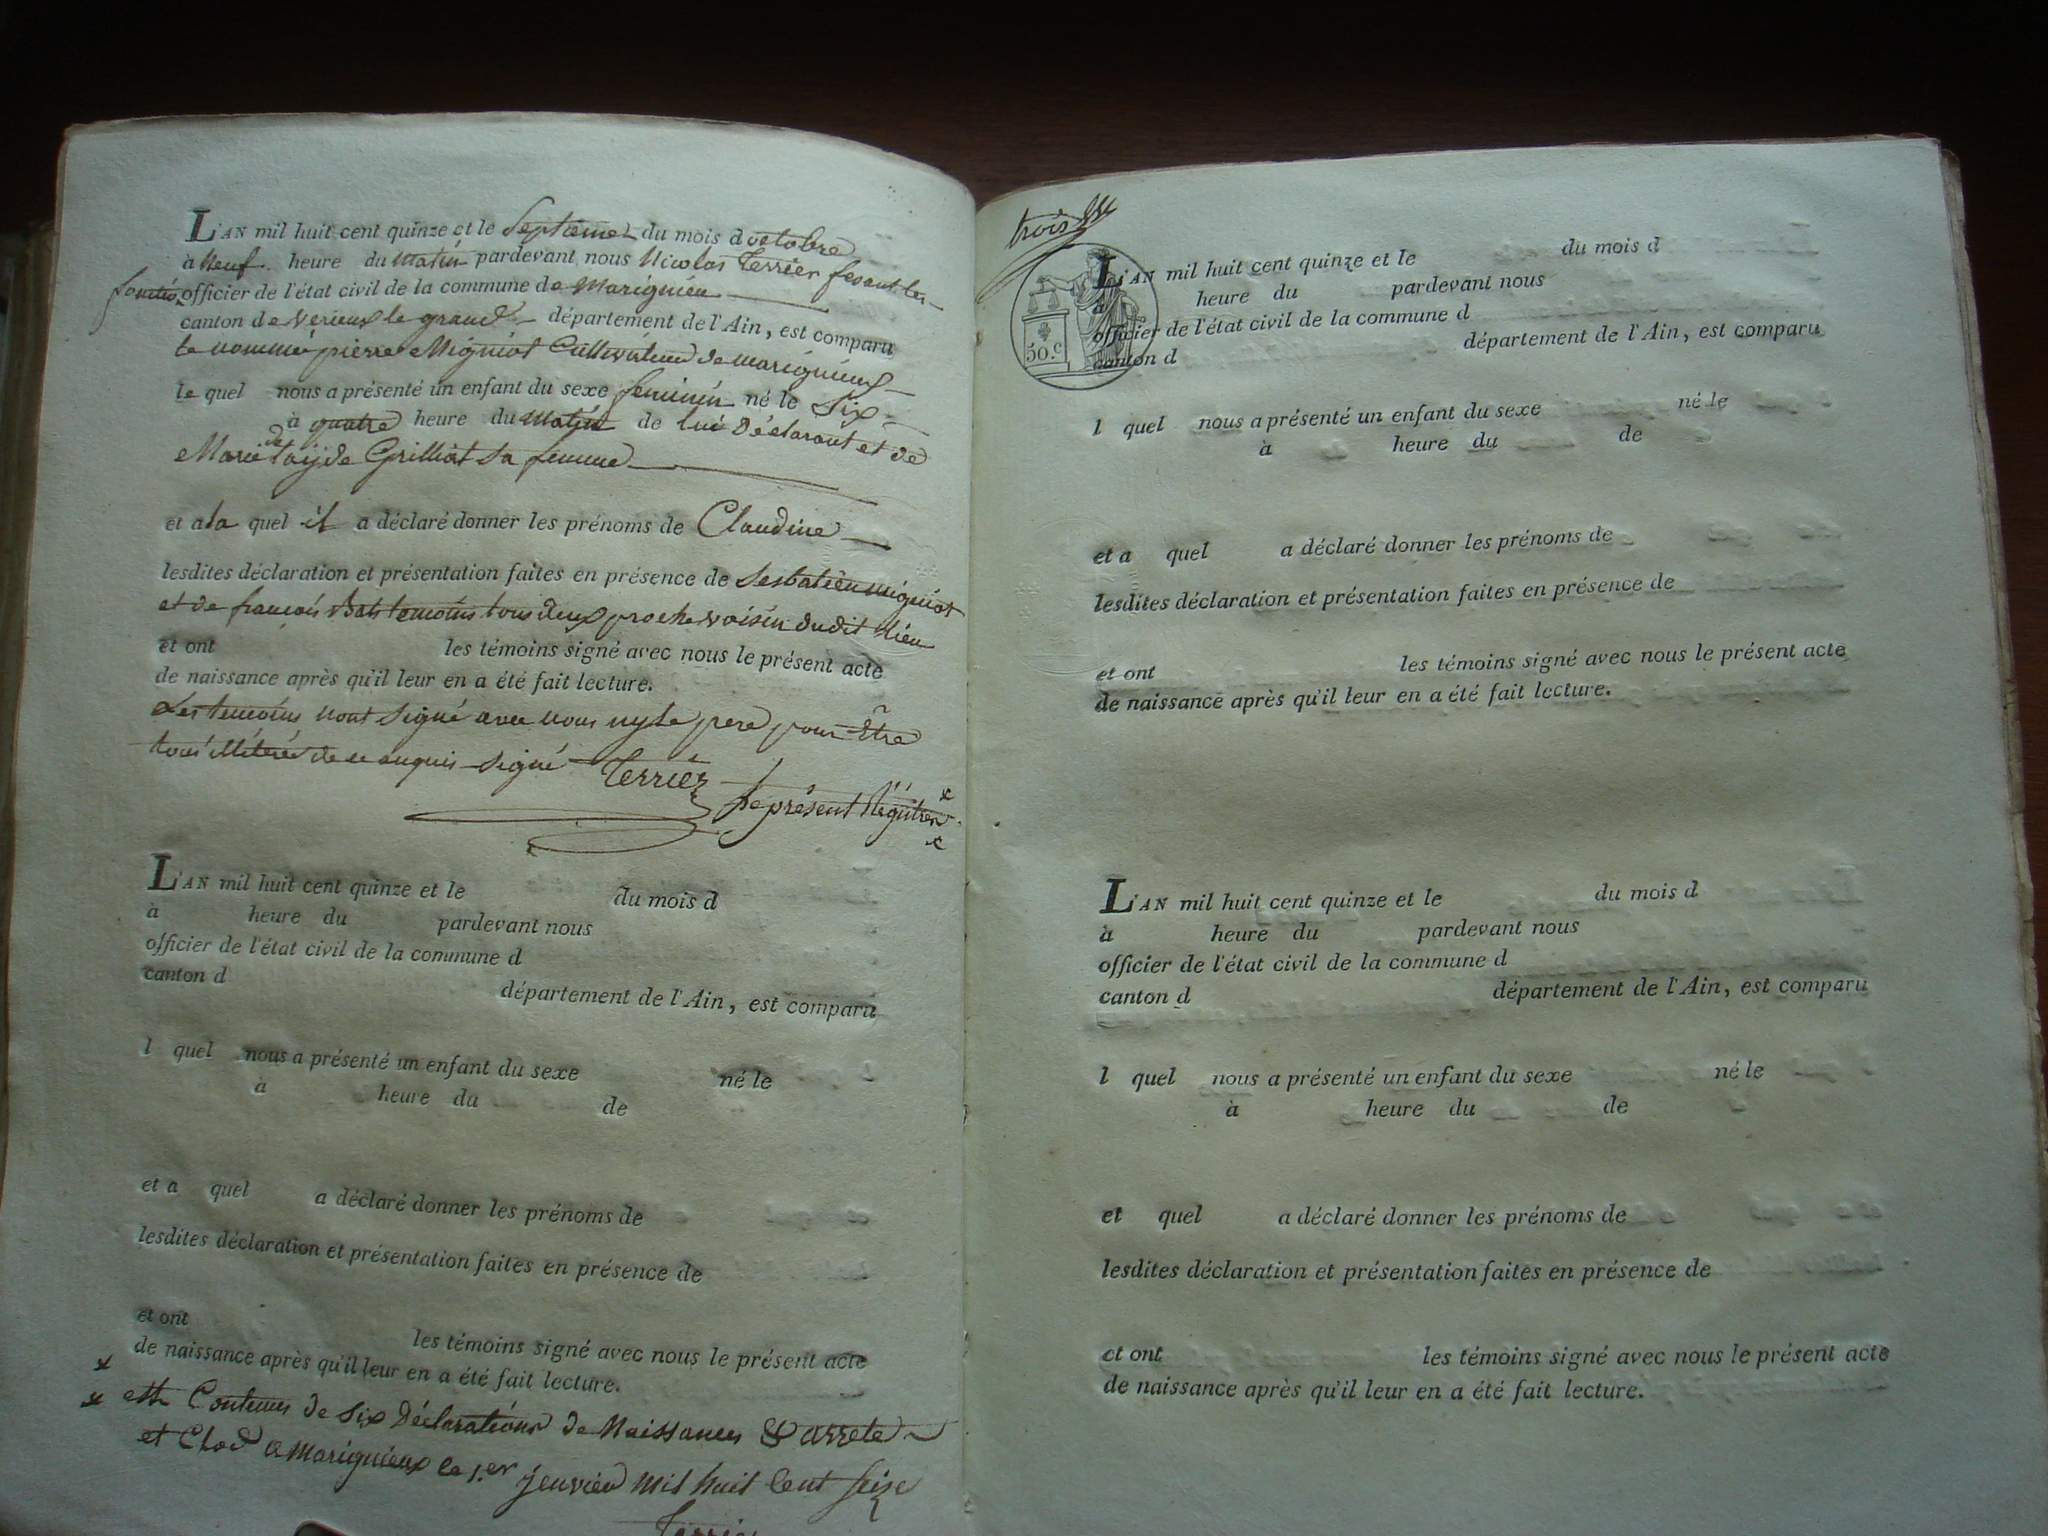 L'AN mil huit cent quinze et le Septiemes du mois d octobre
à Neuf heure du matin pardevant nous Nicolas Terrier fesant les
officier de l'état civil de la commune de Marignieu
canton de Verieux le grand département de l'Ain, est comparu
le nommé pierre Migniot Cultivateur de marignieux
le quel nous a présenté un enfant du sexe feminin né le Six
à quatre heure du Matin de lui Déclarant et de
Marie Grilliat sa femme
et a la quel il a déclaré donner les prénoms de Claudine
lesdites déclaration et présentation faites en présence de Sesbatien migniot
et de francois temoins tous deux proche voisin dudit lieu
et ont les témoins signé avec nous le présent acte
de naissance après qu'il leur en a été fait lecture.
Les temoins nont signé avec nous ny le pere pour être
tous illiteré de ce anquis signé Terrier
Le présent Régistre
L'AN mil huit cent quinze et le du mois d
à heure du pardevant nous
officier de l'état civil de la commune d
canton d département de l'Ain, est comparu
l quel nous a présenté un enfant du sexe né le
à heure du de
et a quel a déclaré donner les prénoms de
lesdites déclaration et présentation faites en présence de
et ont les témoins signé avec nous le présent acte
de naissance après qu'il leur en a été fait lecture.
est Contenus de six Déclarations de Naissances & arrete
et Clod a Marignieux le 1.er jenvier mil huit cent seize
Terrier
trois
50.c
L'AN mil huit cent quinze et le du mois d
à heure du pardevant nous
officier de l'état civil de la commune d
canton d département de l'Ain, est comparu
l quel nous a présenté un enfant du sexe né le
à heure du de
et a quel a déclaré donner les prénoms de
lesdites déclaration et présentation faites en présence de
et ont les témoins signé avec nous le présent acte
de naissance après qu'il leur en a été fait lecture.
L'AN mil huit cent quinze et le du mois d
à heure du pardevant nous
officier de l'état civil de la commune d
canton d département de l'Ain, est comparu
l quel nous a présenté un enfant du sexe né le
à heure du de
et quel a déclaré donner les prénoms de
lesdites déclaration et présentation faites en présence de
et ont les témoins signé avec nous le présent acte
de naissance après qu'il leur en a été fait lecture.